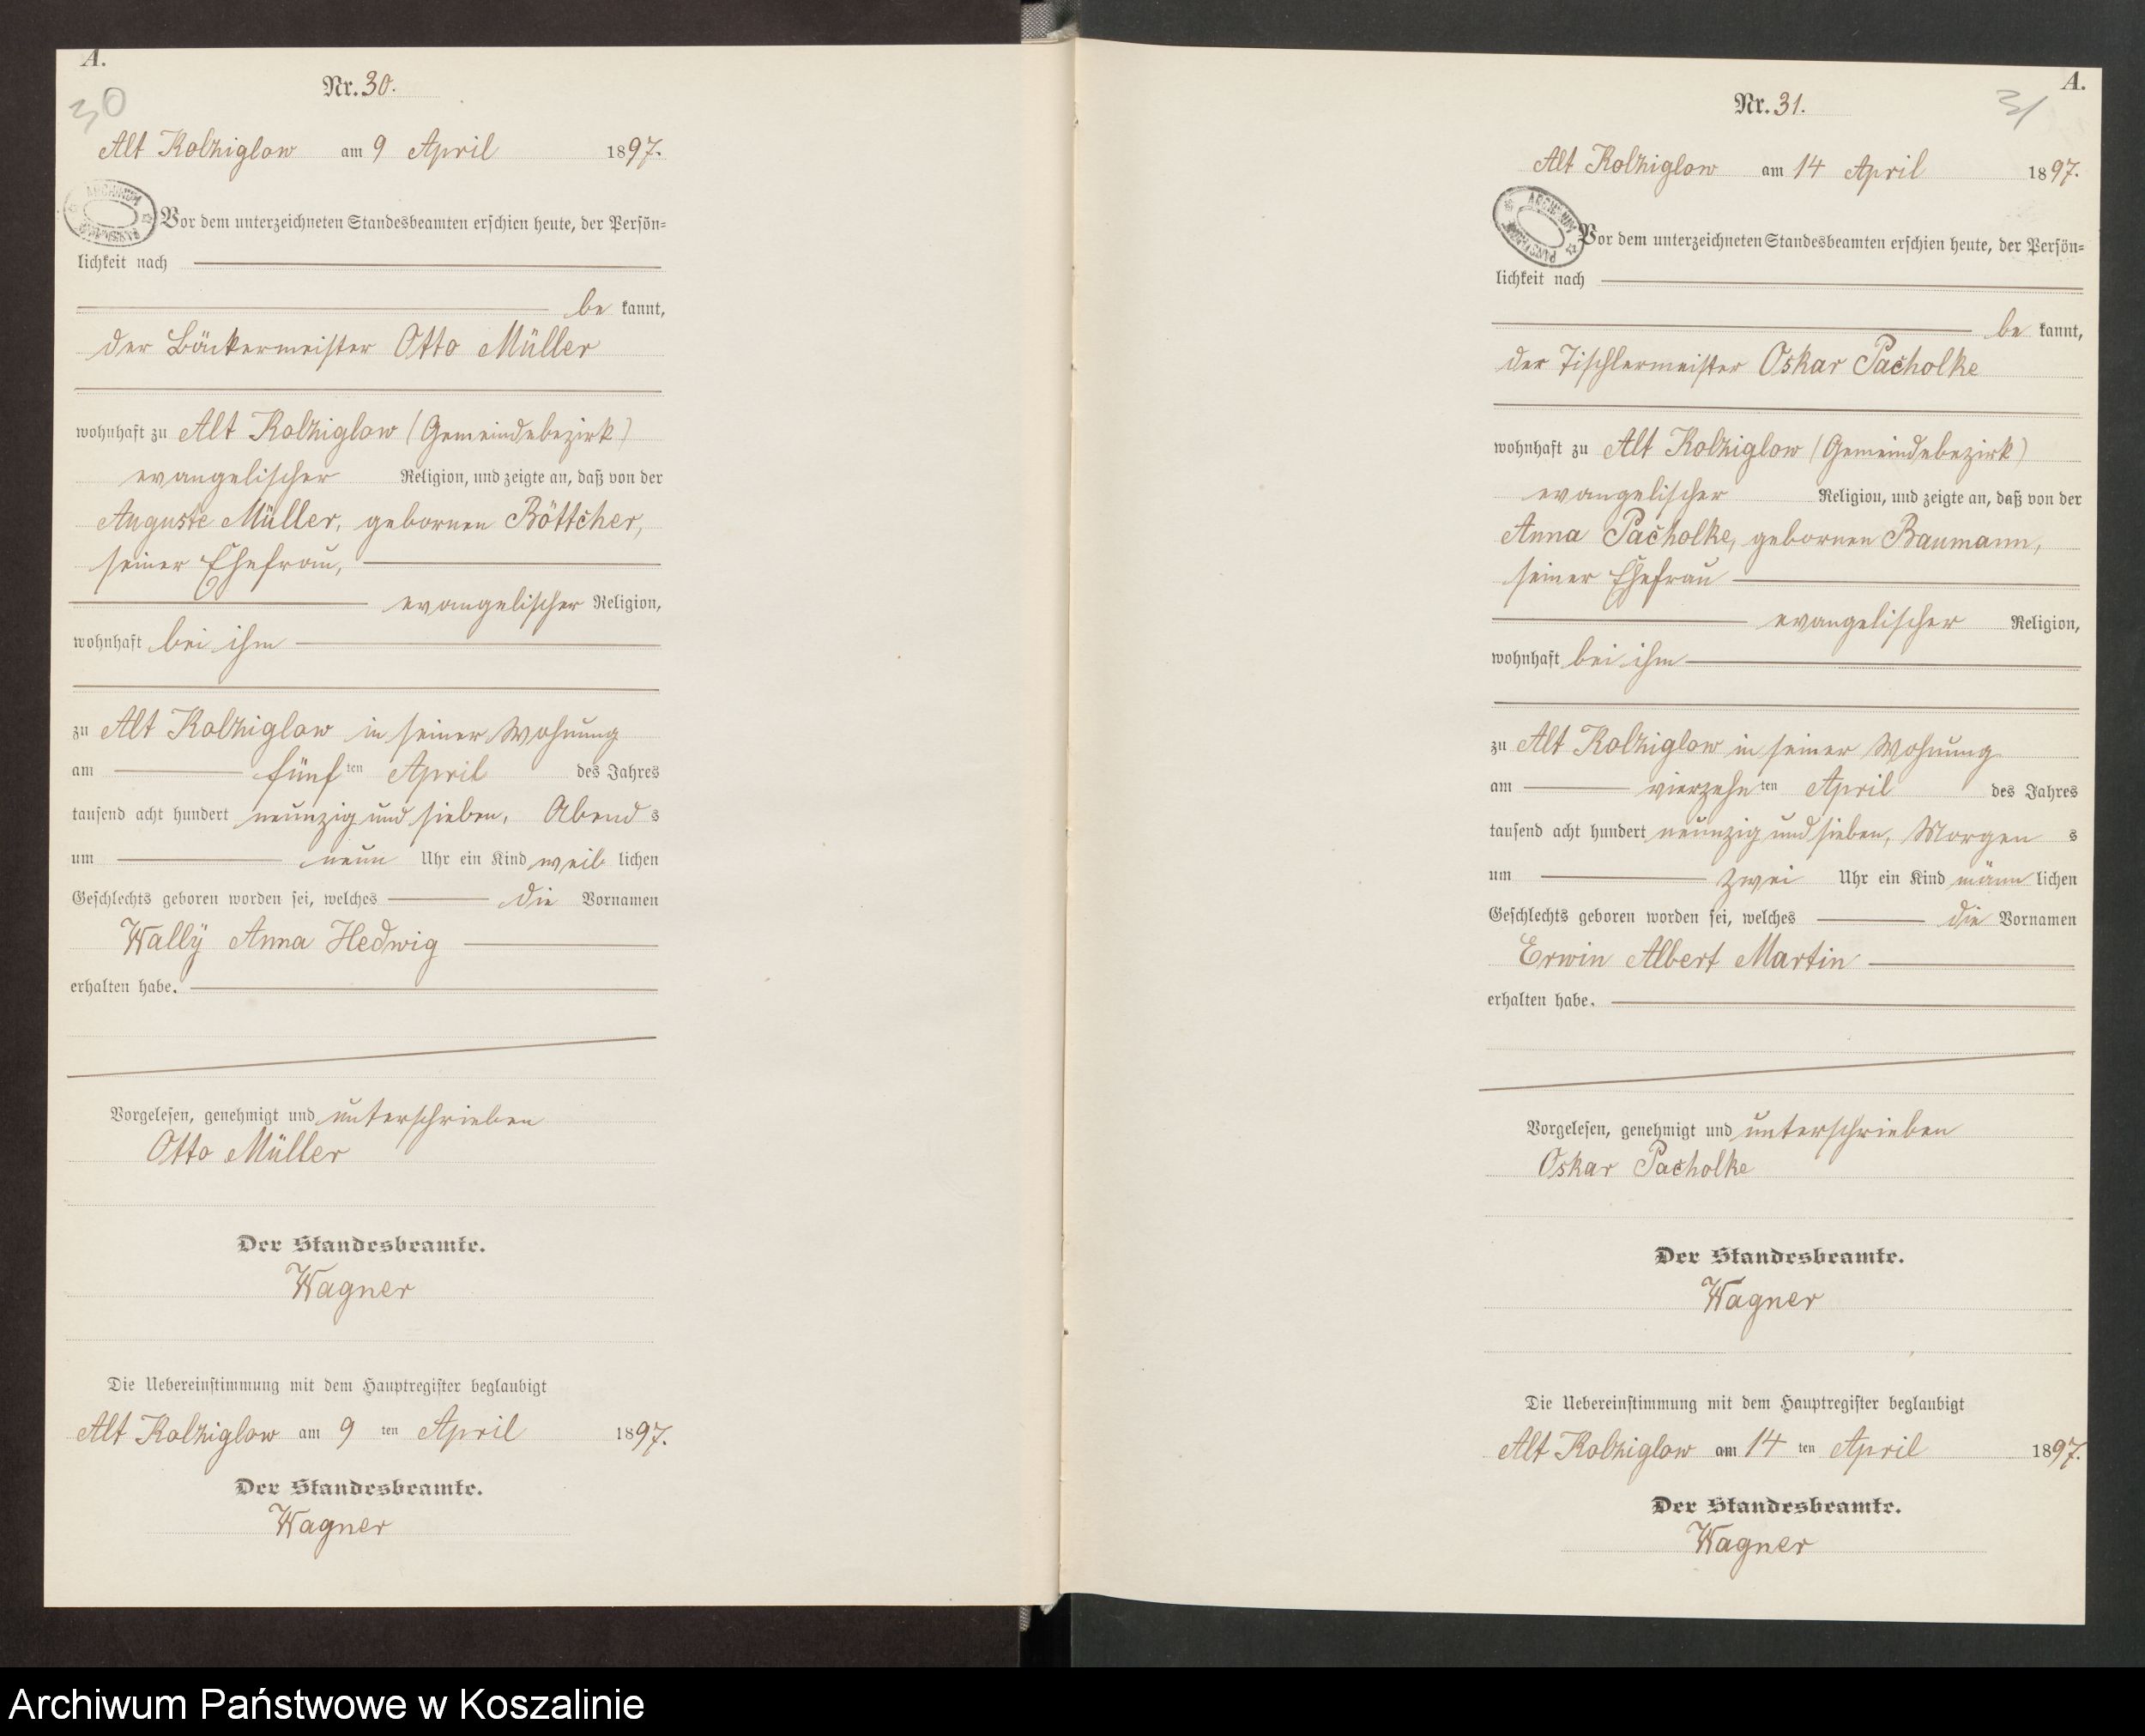 A.
Nr. 30.
30
Alt Kolziglow am 9 April 1897.
ARCHIWUM
Vor dem unterzeichneten Standesbeamten erschien heute, der Persön=
lichkeit nach
be kannt,
der Bäckermeister Otto Müller
wohnhaft zu Alt Kolziglow (Gemeindebezirk)
evangelischer Religion, und zeigte an, daß von der
Auguste Müller, gebornen Böttcher,
seiner Ehefrau,
evangelischer Religion,
wohnhaft bei ihm
zu Alt Kolziglow in seiner Wohnung
am fünf ten April des Jahres
tausend acht hundert neunzig und sieben, Abend s
um neun Uhr ein Kind weib lichen
Geschlechts geboren worden sei, welches die Vornamen
Wally Anna Hedwig
erhalten habe.
Vorgelesen, genehmigt und unterschrieben
Otto Müller
Der Standesbeamte.
Wagner
Die Uebereinstimmung mit dem Hauptregister beglaubigt
Alt Kolziglow am 9 ten April 1897.
Der Standesbeamte.
Wagner
A.
Nr. 31.
31
Alt Kolziglow am 14 April 1897.
ARCHIWUM
Vor dem unterzeichneten Standesbeamten erschien heute, der Persön=
lichkeit nach
be kannt,
der Tischlermeister Oskar Pacholke
wohnhaft zu Alt Kolziglow (Gemeindebezirk)
evangelischer Religion, und zeigte an, daß von der
Anna Pacholke, gebornen Baumann,
seiner Ehefrau
evangelischer Religion,
wohnhaft bei ihm
zu Alt Kolziglow in seiner Wohnung
am vierzehn ten April des Jahres
tausend acht hundert neunzig und sieben, Morgen s
um zwei Uhr ein Kind männ lichen
Geschlechts geboren worden sei, welches die Vornamen
Erwin Albert Martin
erhalten habe.
Vorgelesen, genehmigt und unterschrieben
Oskar Pacholke
Der Standesbeamte.
Wagner
Die Uebereinstimmung mit dem Hauptregister beglaubigt
Alt Kolziglow am 14 ten April 1897.
Der Standesbeamte.
Wagner
Archiwum Państwowe w Koszalinie